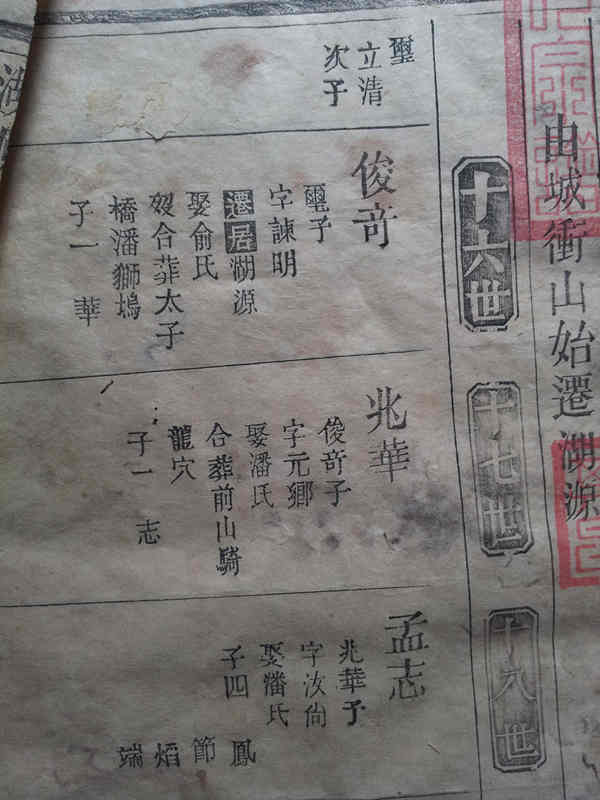 由城衝山始遷湖源
十六世
十七世
十八世
璽
立清
次子
俊奇
璽子
字諫明
遷居湖源
娶俞氏
歿合葬太子
橋潘獅塢
子一 華
兆華
俊奇子
字元鄉
娶潘氏
合葬前山騎
龍穴
子一 志
孟志
兆華子
字汝尚
娶潘氏
子四 鳳
節
焰
端